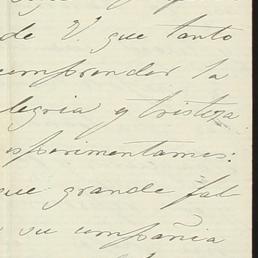 de V. que tanto
comprender la
alegria y tristeza
esperimentamos:
que grande fal
a su compañia